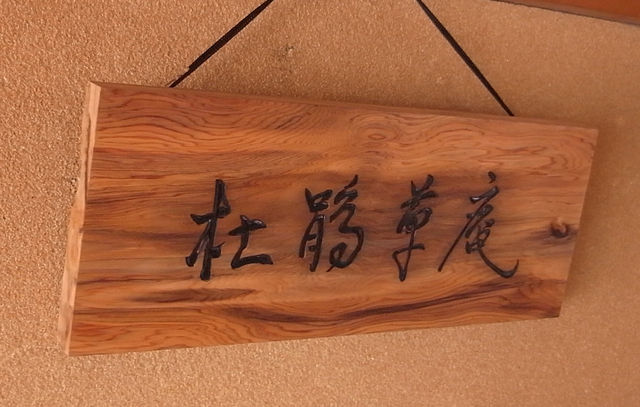 杜鵑草庵